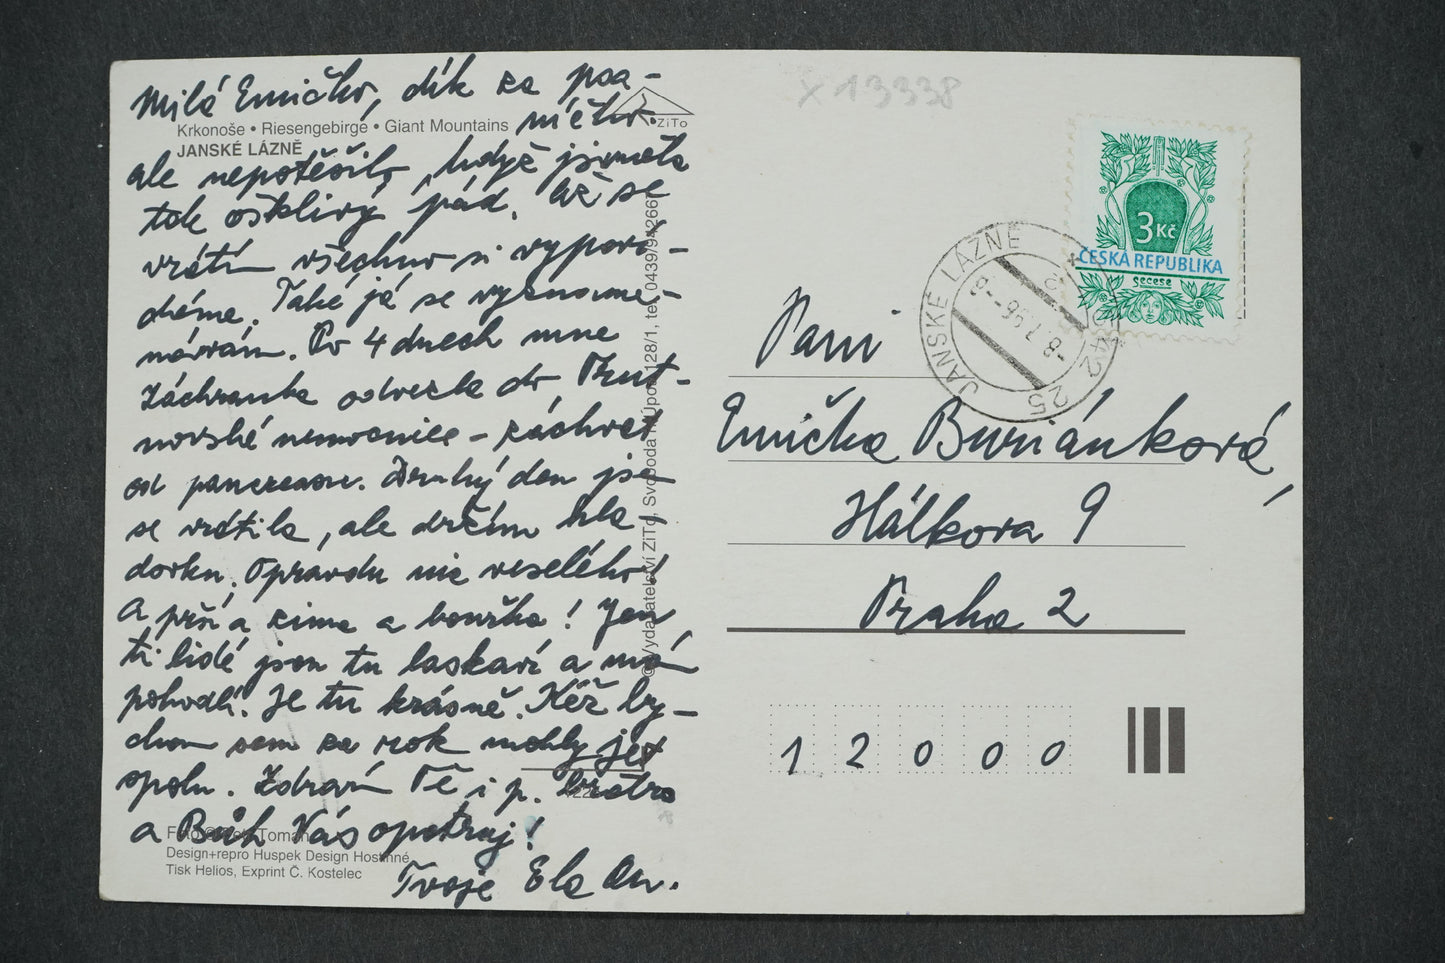 Milá Emičko, dík za psa-
níčko.
ale nepotěšilo, když jsi měla
tak ošklivý pád. Až se
vrátím všechno si vypoví-
dáme. Také já se
Po 4 dnech mne
Záchranka odvezla do Trut-
novské nemocnice – záchvat
od pancreasu. Druhý den jsem
se vrátila, ale držím hla-
dovku. Opravdu nic veselého!
A prší a zima a bouřka! Jen
ti lidé jsou tu laskaví a mám
pohodlí. Je tu krásně. Kéž by-
chom sem za rok mohly jet
spolu. Zdravím Tě i p. bratra
a Bůh Vás opatruj!
Tvoje Ela
Krkonoše • Riesengebirge • Giant Mountains
JANSKÉ LÁZNĚ
ZiTo
Vydavatelství ZiTo, Svoboda n. Úpou 128/1, tel. 0439/942667
Tomáš
Design+repro Huspek Design Hostinné
Tisk Helios, Exprint Č. Kostelec
X 13338
3 Kč
ČESKÁ REPUBLIKA
Secese
JANSKÉ LÁZNĚ
-8.7.96--8
542 25
Paní
Emička Buriánková,
Hálkova 9
Praha 2
1 2 0 0 0